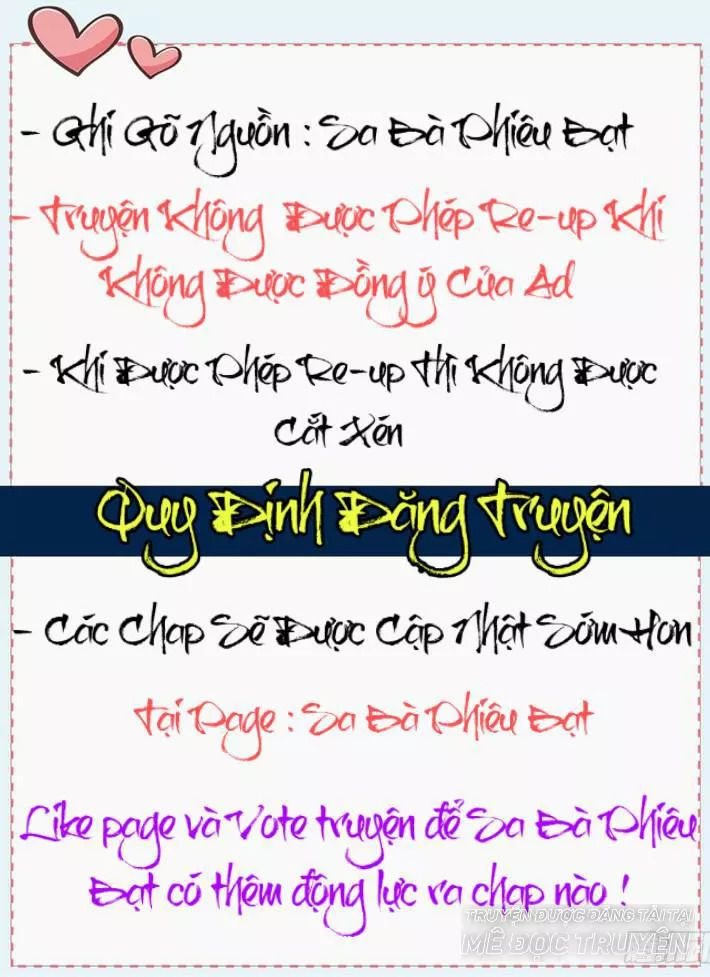 - Ghi Gõ Nguồn : Sa Bà Phiêu Bạt
- Truyện Không Được Phép Re-up Khi
Không Được Đồng ý Của Ad
- Khi Được Phép Re-up Thì Không Được
Cắt Xén
Quy Định Đăng Truyện
- Các Chap Sẽ Được Cập Nhật Sớm Hơn
Tại Page : Sa Bà Phiêu Bạt
Like page và Vote truyện để Sa Bà Phiêu
Bạt có thêm động lực ra chap nào !
TRUYỆN ĐƯỢC ĐĂNG TẢI TẠI
MÊ ĐỌC TRUYỆN